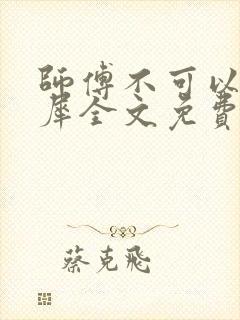 師傅不可以
犀全文免費
蔡克飛